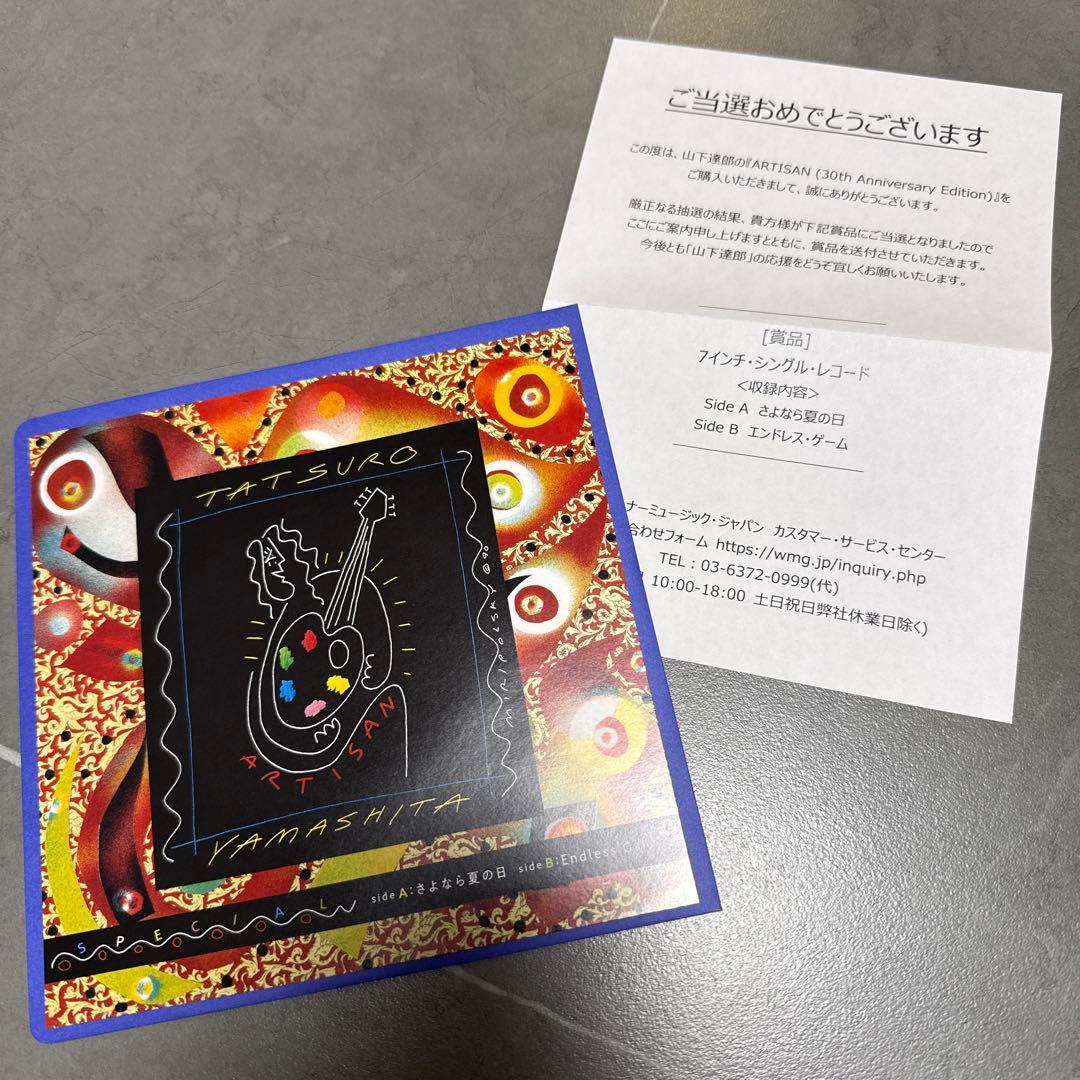 ご当選おめでとうございます
この度は、山下達郎の『ARTISAN (30th Anniversary Edition)』を
ご購入いただきまして、誠にありがとうございます。
厳正なる抽選の結果、貴方様が下記賞品にご当選となりましたので
ここにご案内申し上げますとともに、賞品を送付させていただきます。
今後とも「山下達郎」の応援をどうぞ宜しくお願いいたします。
[賞品]
7インチ・シングル・レコード
<収録内容>
Side A さよなら夏の日
Side B エンドレス・ゲーム
ナーミュージック・ジャパン カスタマー・サービス・センター
合わせフォーム https://wmg.jp/inquiry.php
TEL：03-6372-0999(代)
10:00-18:00 土日祝日弊社休業日除く)
TATSURO
MIRIPOLSKY @90
ARTISAN
YAMASHITA
SPECIAL
side A：さよなら夏の日 side B：Endless